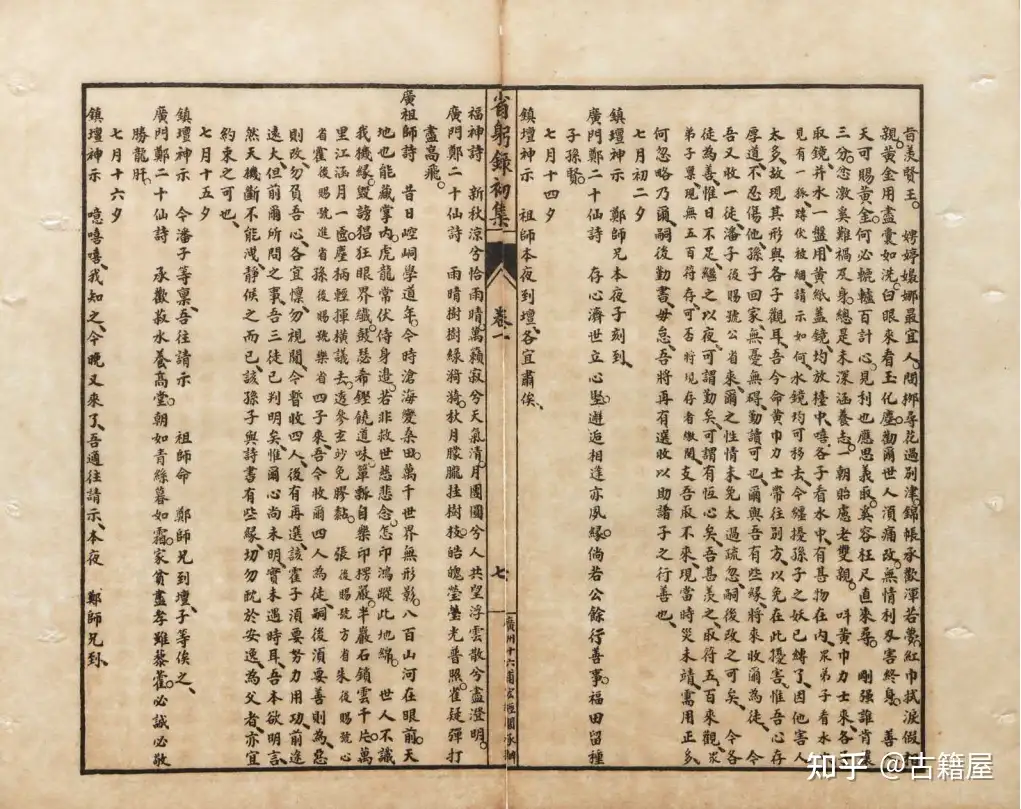 肯羨賢王。　娉婷嬝娜最宜人、問柳尋花過別津、錦帳承歡渾若夢、紅巾拭淚假
親、黃金用盡囊如洗、白眼來看玉化塵、勸爾世人須痛改、無情利刃害終身。善
天可賜黃金、何必轆轤百計心、見利也應思義取、奚容枉尺直來尋。剛強誰肯讓
三分、忿激奚難禍及身、總是未深涵養志、一朝貽慮老雙親。　叫黃巾力士來各
取鏡、并水一盤、用黃紙蓋鏡、均放檯中、嘻、各子看水中有甚物在內、眾弟子看水
見有一狐、蹲伏被綑、請示如何、水鏡均可移去、今纏擾孫子之妖已縛了、因他害人
太多、故現其形與各子觀耳、吾今命黃巾力士帶往別方、以免在此擾害、惟吾心存
厚道、不忍傷他、孫子回家、無憂無碍、勤讀可也、爾與吾有些緣、將來收爾為徒、　令
吾又收一徒、潘子後賜號公省來、爾之性情未免太過疏忽、嗣後改之可矣、　令各
徒為善、惟日不足、繼之以夜、可謂勤矣、可謂有恒心矣、吾甚羨之、取符五百來觀、眾
弟子稟現無五百符存、可否將現存者繳閱、支吾取不來、現當時災未靖、需用正多、
何忽略乃爾、嗣後勤書、毋怠、吾將再有選收、以助諸子之行善也、
七月初二夕
鎮壇神示　鄭師兄本夜子刻到、
廣門鄭二十仙詩　存心濟世立心堅、邂逅相逢亦夙緣、倘若公餘行善事、福田留種
子孫賢。
七月十四夕
鎮壇神示　祖師本夜到壇、各宜肅俟、
省躬錄初集
卷一
七
廣州十六甫宏經閣承刊
福神詩　新秋涼兮恰雨晴、萬籟寂兮天氣清、月團團兮人共望、浮雲散兮盡澄明。
廣門鄭二十仙詩　雨晴樹樹綠猗猗、秋月朦朧挂樹枝、皓魄瑩瑩光普照、雀疑彈打
盡高飛。
廣祖師詩　昔日崆峒學道年、今時滄海變桑田、萬千世界無形影、八百山河在眼前、天
地也能藏掌內、虎龍常伏侍身邊、若非救世慈悲念、怎印鴻蹤此地綿。　世人不識
我機緣、毀謗猖狂眼界纖、鼓瑟希鏗饒道味、簞瓢自樂印楞嚴、半巖石鎖雲千片、萬
里江涵月一匳、麈柄輕揮橫議去、透參玄妙免膠黏。張後賜號方省朱後賜號心
省霍後賜號進省孫後賜號樂省四子來、吾今收爾四人為徒、嗣後須要善則為、惡
則改、勿負吾心、各宜懍勿視閒、令督收四人、後有再選、該霍子須要努力用功、前途
遠大、但前爾所問之事、吾三徒已判明矣、惟爾心尚未明、實未遇時耳、吾本欲明言、
然天機斷不能洩、靜候之而已、該孫子與詩書有些緣、切勿耽於安逸、為父者、亦宜
約束之可也、
七月十五夕
鎮壇神示　令潘子等稟、吾往請示　祖師命　鄭師兄到壇、子等俟之、
廣門鄭二十仙詩　承歡菽水養高堂、朝如青絲暮如霜、家貧盡孝雖藜藿、必誠必敬
勝龍肝。
七月十六夕
鎮壇神示　噫嘻嘻、我知之、今晚又來了、吾適往請示、本夜　鄭師兄到、
知乎 @古籍屋